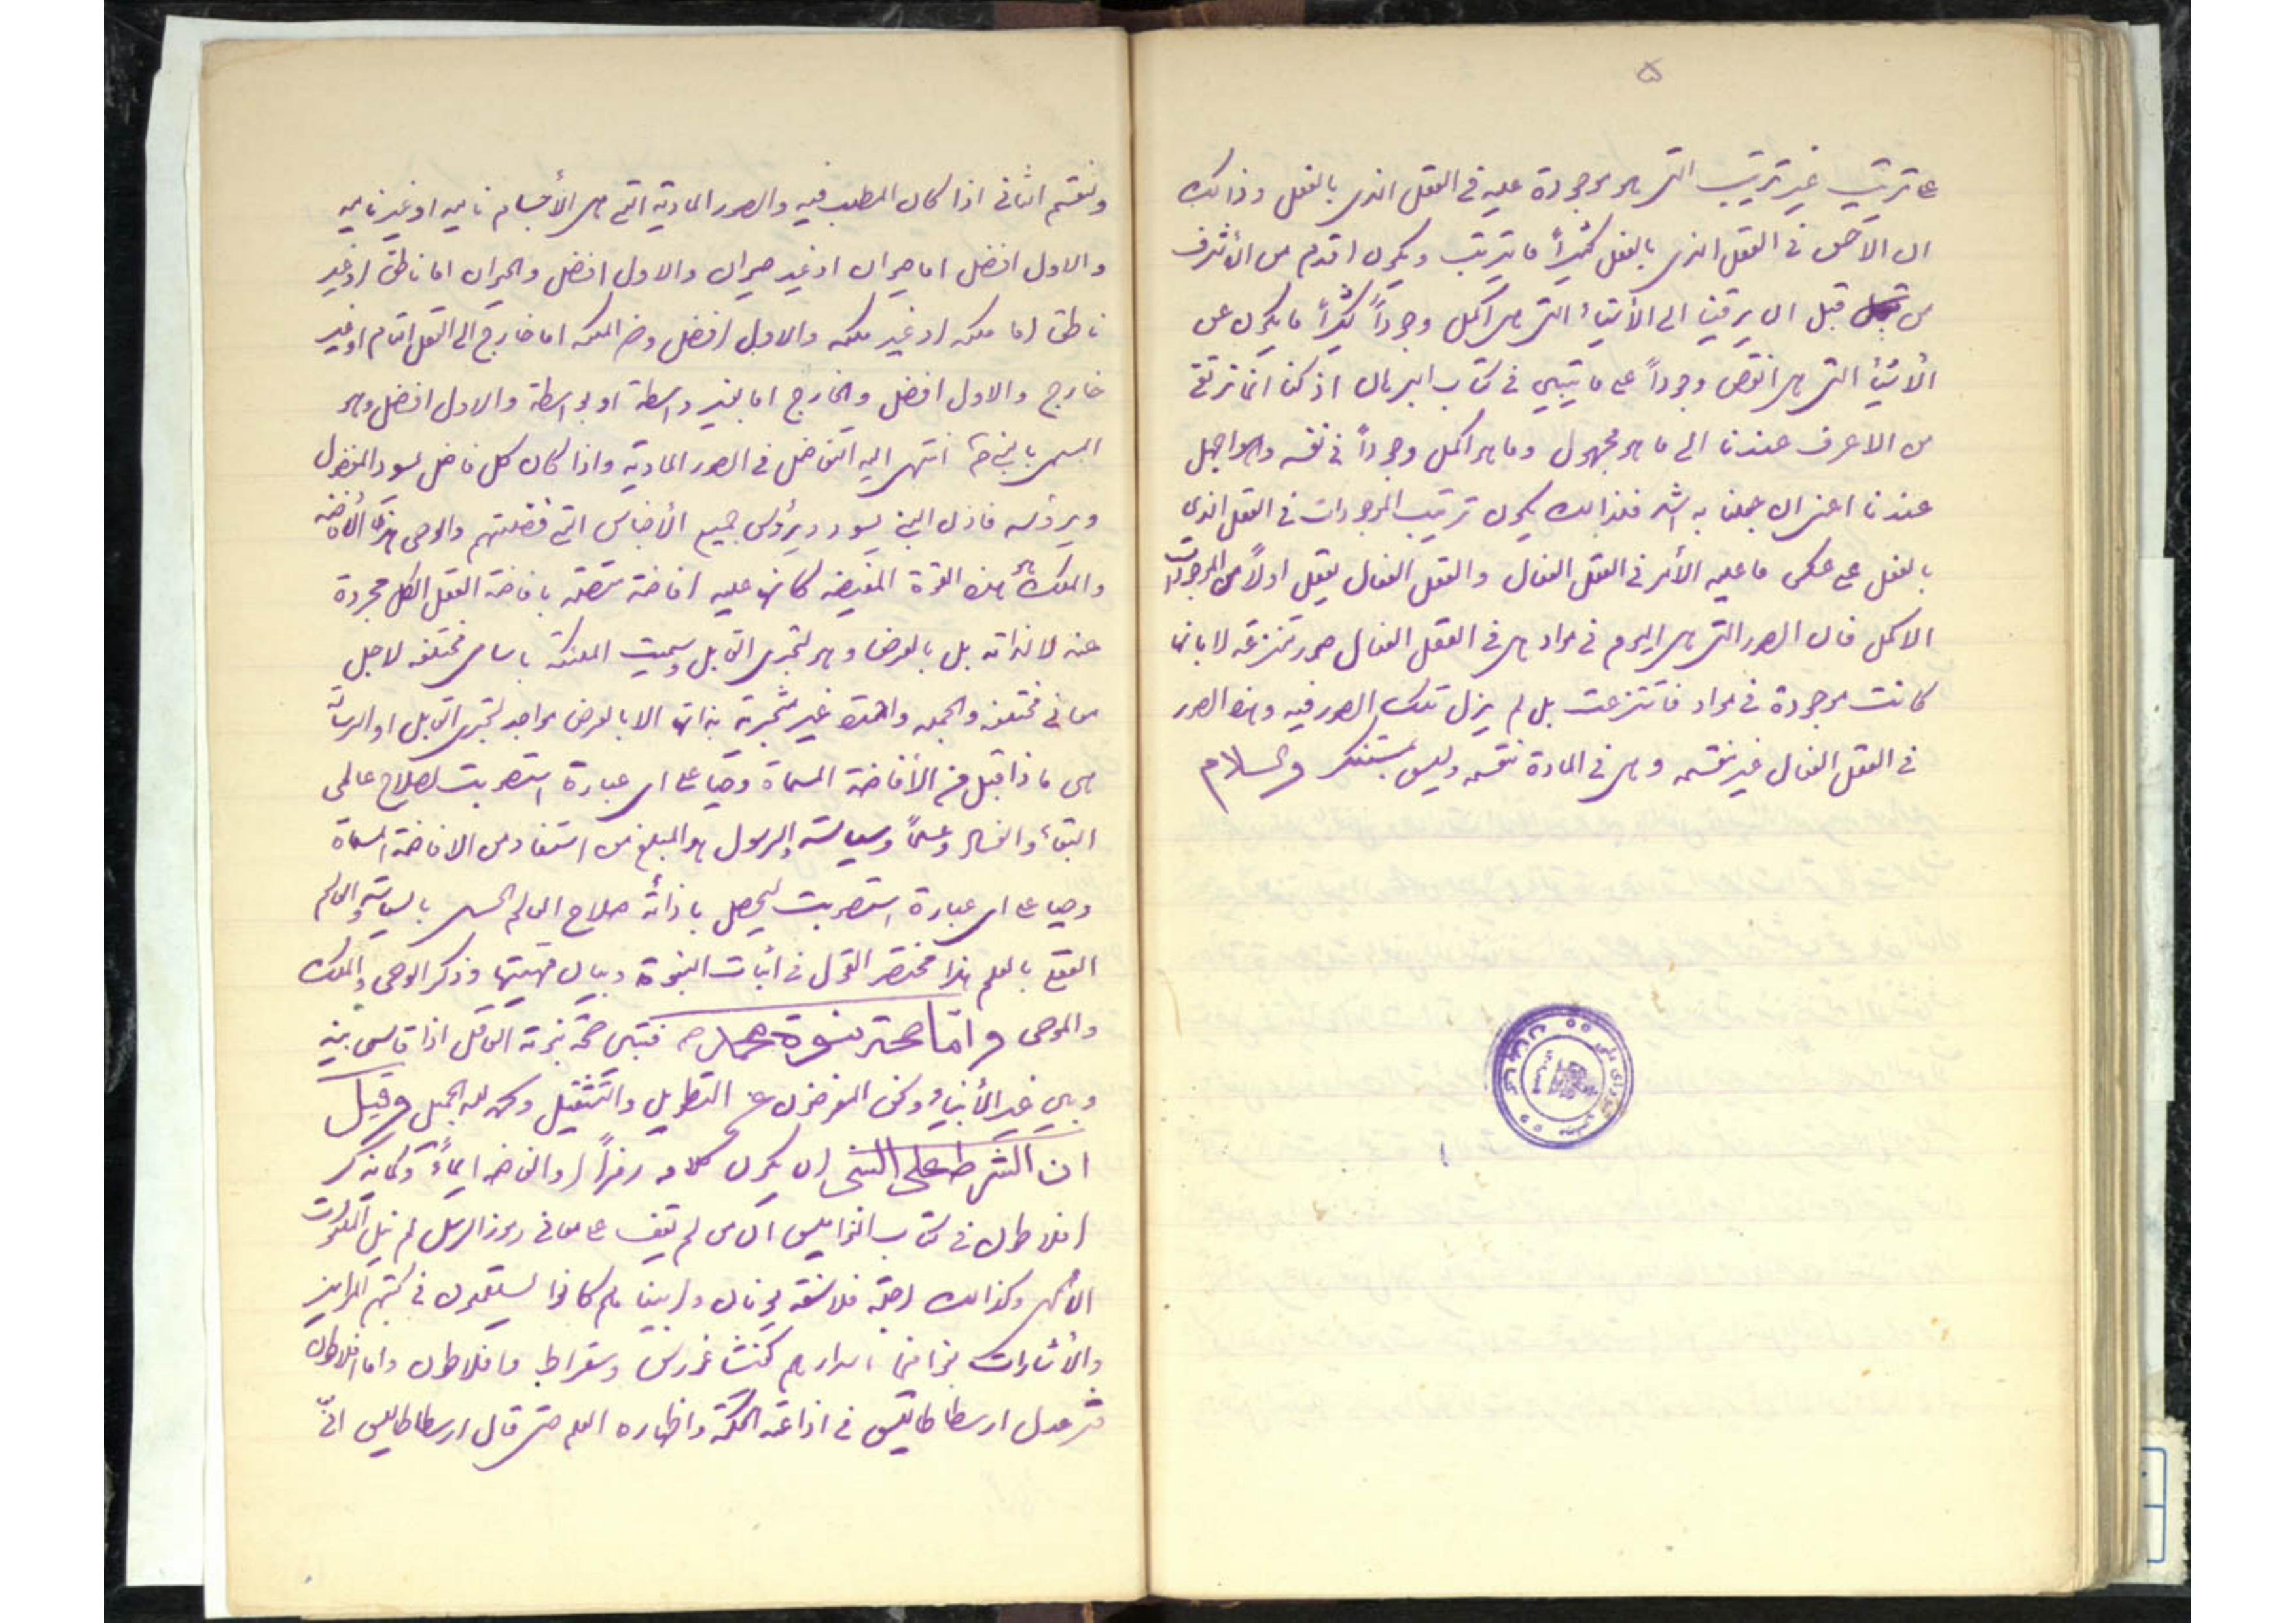 ۵
على ترتيب غير ترتيب التي هو موجودة عليه في العقل الذي بالفعل وذالك
ان الاخس في العقل الذي بالفعل كثيراً ما يترتب ويكون اقدم من الأشرف
من قبل ان يرقينا الى الأشياء التي هي اكمل وجوداً كثيراً ما يكون عن
الأشياء التي هي انقص وجوداً على ما يتبين في كتاب البرهان اذ كنا انما نرتقى
من الاعرف عندنا الى ما هو مجهول وما هو اكمل وجوداً في نفسه وهو اجهل
عندنا اعني ان جهلنا به اشد فلذالك يكون ترتيب الموجودات في العقل الذي
بالفعل على عكس ما عليه الأمر في العقل الفعال والعقل الفعال يعقل اولاً من الموجودات
الاكمل فان الصور التي هي اليوم في مواد هي في العقل الفعال صور منتزعة لا بانها
كانت موجودة في مواد فانتزعت بل لم يزل تلك الصور فيه وهذه الصور
في العقل الفعال غير منقسمه وهي في المادة منقسمه وليس بمستنكر والسلام
والقسم الثانى اذا كان المطلب فيه والصور المادية التي هي الأجسام ناميه او غير ناميه
والاول افضل اما حيوان او غير حيوان والاول افضل والحيوان اما ناطق او غير
ناطق اما ملكه او غير ملكه والاول افضل و الملكه اما خارج الى الفعل التام او غير
خارج والاول افضل والخارج اما بغير واسطة او بواسطة والاول افضل وهو
المسمى بالنبي انتهى اليه التفاضل في الصور المادية واذا كان كل فاضل يسود المفضول
ويرؤسه فاذن النبي يسود ويرؤس جميع الأجناس التي فضلتهم والوحى هذه الأفاضه
والملك هو هذه القوة المفيضه كانها عليه افاضة متصلة بافاضة العقل الكل مجردة
عنه لا لذاته بل بالعرض وهو لتجزى القابل وسميت الملئكة باسامى مختلفه لاجل
معانى مختلفه والجمله واحدة غير متجزية بذاتها الا بالعرض لتجزى القابل او الرسالة
هى ما ذا قبل من الأفاضة المسماة وحياً على اى عبارة استصوبت لصلاح عالمى
البقاء والفساد علماً وسياسة والرسول هو المبلغ من استفاد من الافاضة المسماة
وحياً على اى عبارة استصوبت ليحصل صلاح العالم الحسى بالسياسة والعالم
العقلى بالعلم هذا مختصر القول في اثبات النبوة وبيان مهيتها وذكر الوحى والملك
والموحى واما صحة نبوة محمد ص فتبين صحة نبوته العاقل اذا قاس بينه
وبين غير الأنبياء ونحن المعرضون عن التطويل والتثقيل وقيل
ان الشرط على النبي ان يكون كلامه رمزاً والفاظه ايماءً وكما يذكر
افلاطون في كتاب النواميس ان من لم يقف على معانى رموز الرسل لم ينل الملكوت
الألهى وكذالك اجلة فلاسفة يونان وانبيناهم كانوا يستعملون في كتبهم المراميز
والأشارات اسرارهم كفيثاغورس وسقراط وافلاطون واما افلاطون
فقد عدل ارسطاطاليس في اذاعته الحكمة واظهاره العلم حتى قال ارسطاطاليس انى